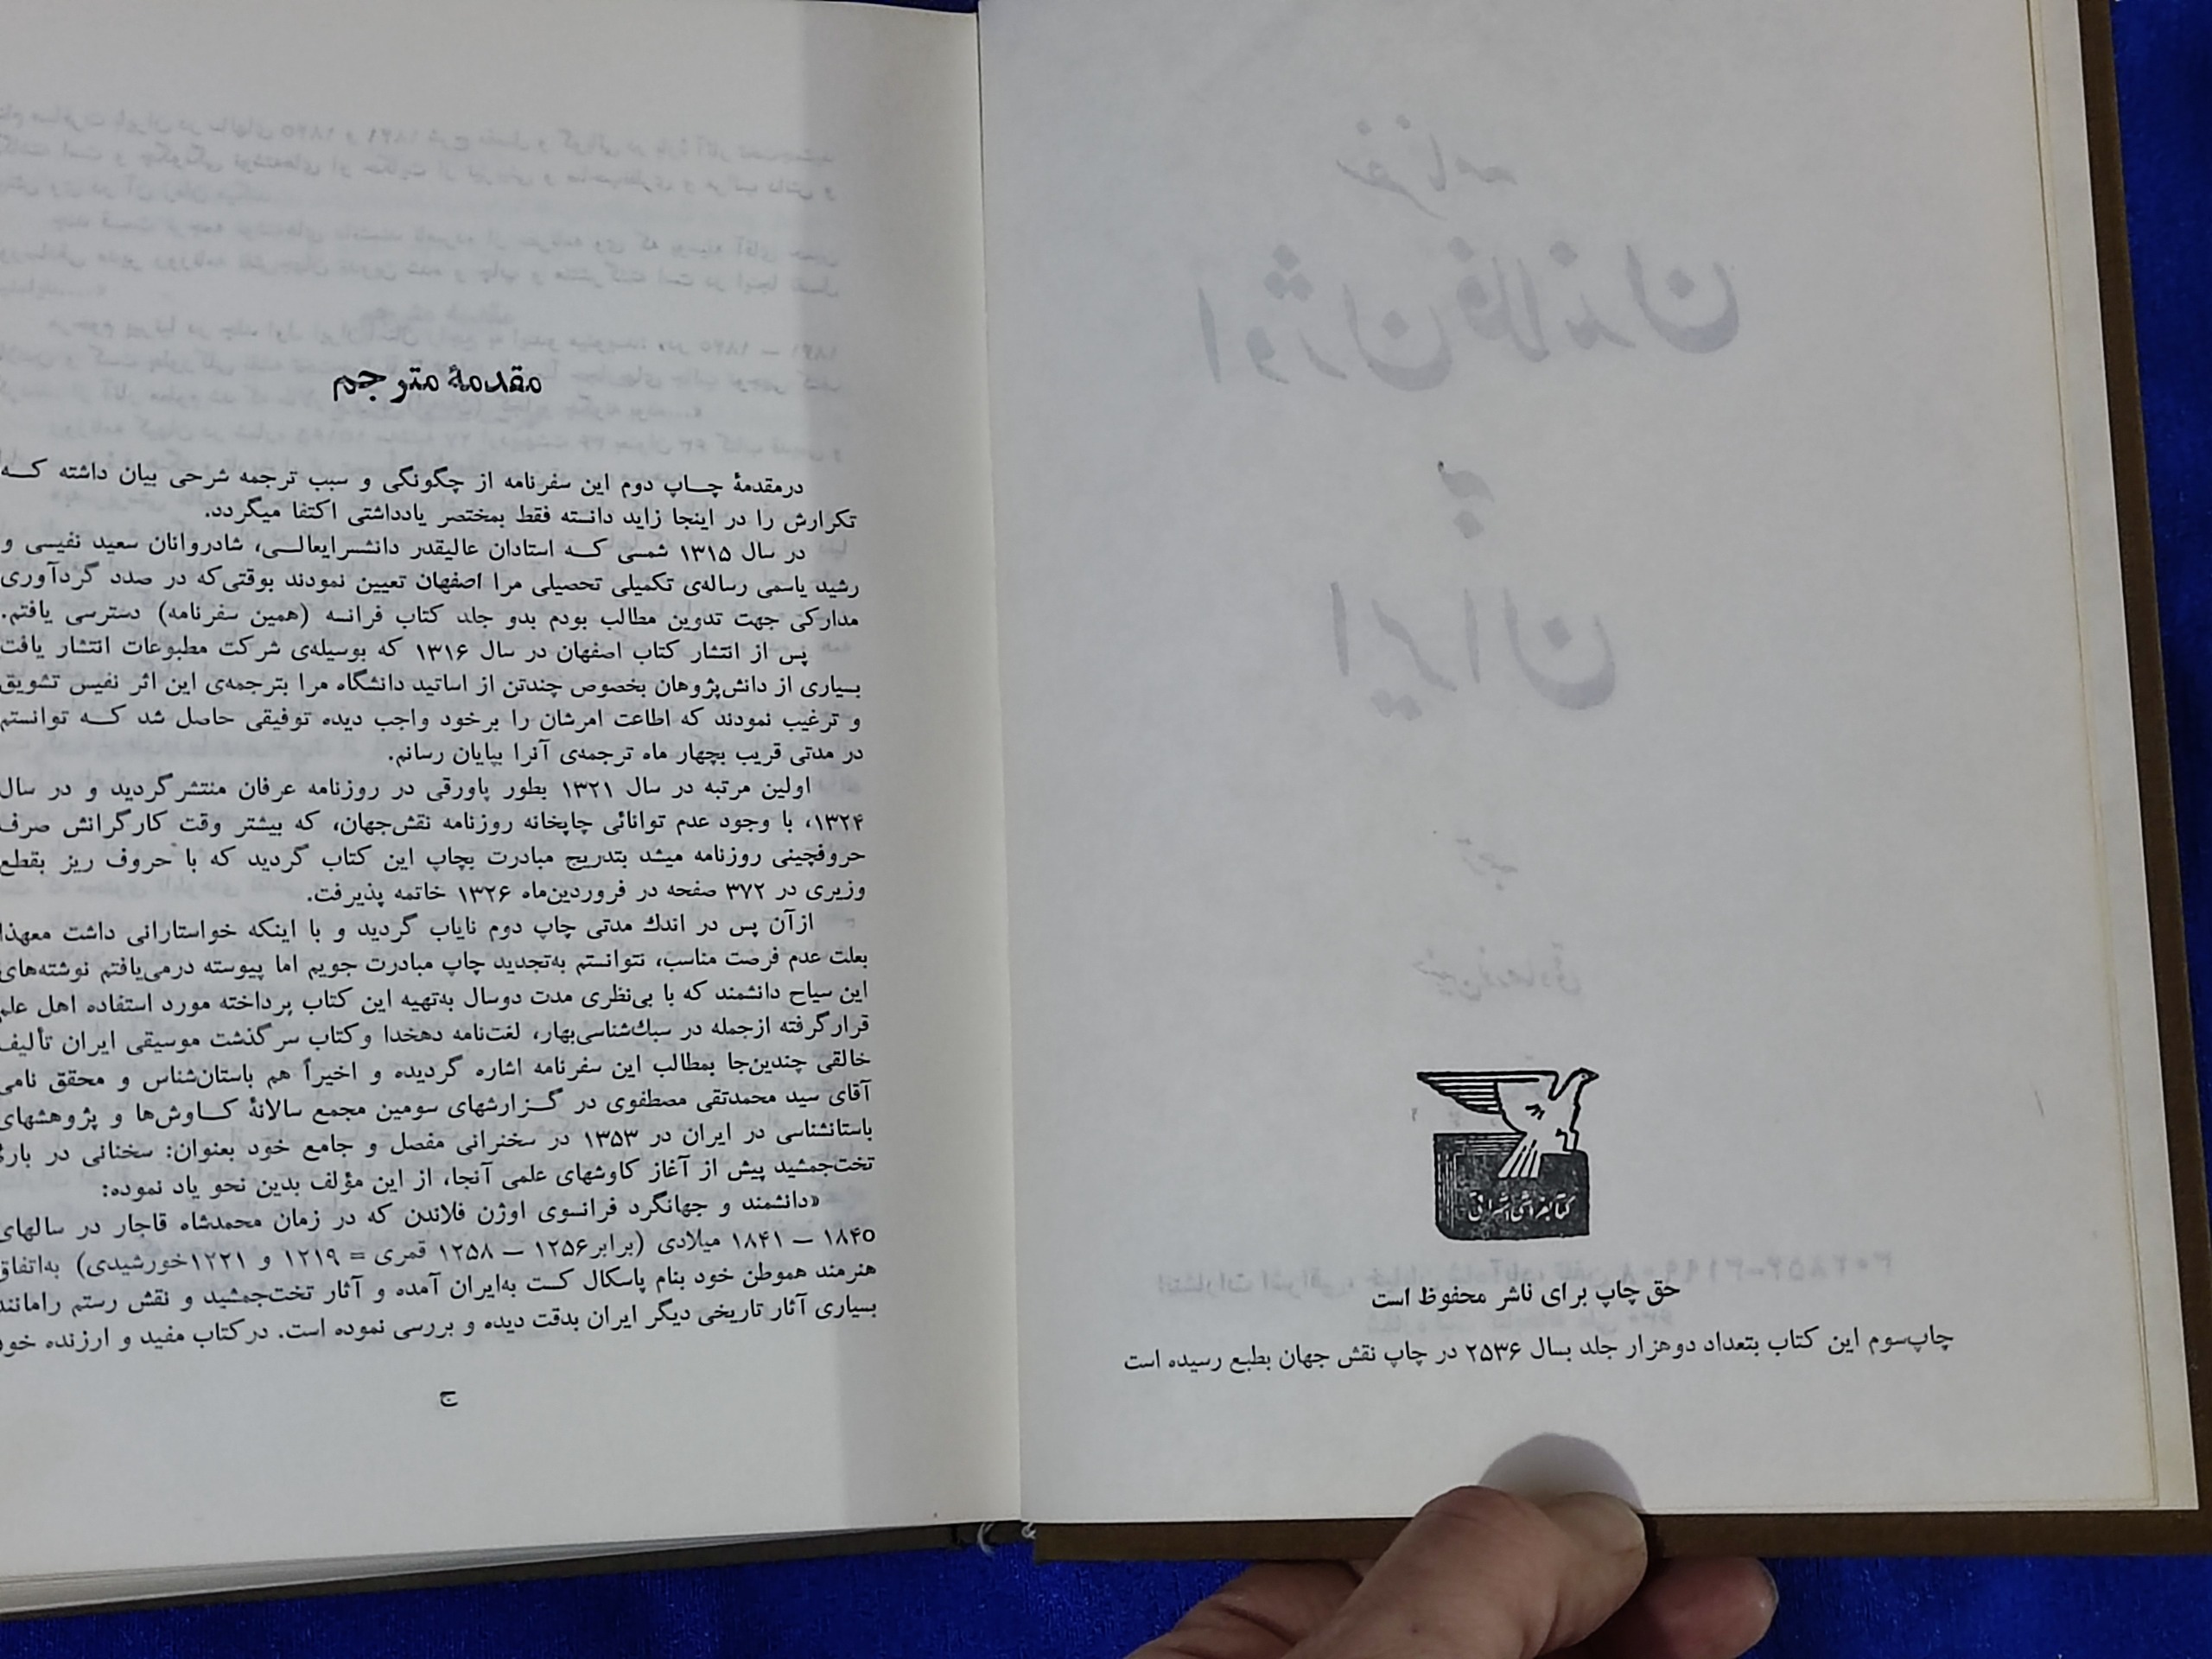 کتابفروشی اشراقی
حق چاپ برای ناشر محفوظ است
چاپ‌سوم این کتاب بتعداد دوهزار جلد بسال ۲۵۳۶ در چاپ نقش جهان بطبع رسیده است
مقدمهٔ مترجم
درمقدمهٔ چــاپ دوم این سفرنامه از چگونگی و سبب ترجمه شرحی بیان داشته کــه
تکرارش را در اینجا زاید دانسته فقط بمختصر یادداشتی اکتفا میگردد.
در سال ۱۳۱۵ شمسی کــه استادان عالیقدر دانشسرایعالــی، شادروانان سعید نفیسی و
رشید یاسمی رساله‌ی تکمیلی تحصیلی مرا اصفهان تعیین نمودند بوقتی‌که در صدد گردآوری
مدارکی جهت تدوین مطالب بودم بدو جلد کتاب فرانسه (همین سفرنامه) دسترسی یافتم.
پس از انتشار کتاب اصفهان در سال ۱۳۱۶ که بوسیله‌ی شرکت مطبوعات انتشار یافت
بسیاری از دانش‌پژوهان بخصوص چندتن از اساتید دانشگاه مرا بترجمه‌ی این اثر نفیس تشویق
و ترغیب نمودند که اطاعت امرشان را برخود واجب دیده توفیقی حاصل شد کــه توانستم
در مدتی قریب بچهار ماه ترجمه‌ی آنرا بپایان رسانم.
اولین مرتبه در سال ۱۳۲۱ بطور پاورقی در روزنامه عرفان منتشر گردید و در سال
۱۳۲۴، با وجود عدم توانائی چاپخانه روزنامه نقش‌جهان، که بیشتر وقت کارگرانش صرف
حروفچینی روزنامه میشد بتدریج مبادرت بچاپ این کتاب گردید که با حروف ریز بقطع
وزیری در ۳۷۲ صفحه در فروردین‌ماه ۱۳۲۶ خاتمه پذیرفت.
ازآن پس در اندك مدتی چاپ دوم نایاب گردید و با اینکه خواستارانی داشت معهذا
بعلت عدم فرصت مناسب، نتوانستم به‌تجدید چاپ مبادرت جویم اما پیوسته درمی‌یافتم نوشته‌های
این سیاح دانشمند که با بی‌نظری مدت دوسال به‌تهیه این کتاب پرداخته مورد استفاده اهل علم
قرارگرفته ازجمله در سبك‌شناسی‌بهار، لغت‌نامه دهخدا وکتاب سرگذشت موسیقی ایران تألیف
خالقی چندین‌جا بمطالب این سفرنامه اشاره گردیده و اخیراً هم باستان‌شناس و محقق نامی
آقای سید محمدتقی مصطفوی در گــزارشهای سومین مجمع سالانهٔ کــاوش‌ها و پژوهشهای
باستانشناسی در ایران در ۱۳۵۳ در سخنرانی مفصل و جامع خود بعنوان: سخنانی در بارهٔ
تخت‌جمشید پیش از آغاز کاوشهای علمی آنجا، از این مؤلف بدین نحو یاد نموده:
«دانشمند و جهانگرد فرانسوی اوژن فلاندن که در زمان محمدشاه قاجار در سالهای
۱۸۴۰ – ۱۸۴۱ میلادی (برابر۱۲۵۶ – ۱۲۵۸ قمری = ۱۲۱۹ و ۱۲۲۱خورشیدی) به‌اتفاق
هنرمند هموطن خود بنام پاسکال کست به‌ایران آمده و آثار تخت‌جمشید و نقش رستم رامانند
بسیاری آثار تاریخی دیگر ایران بدقت دیده و بررسی نموده است. درکتاب مفید و ارزنده خود
ج